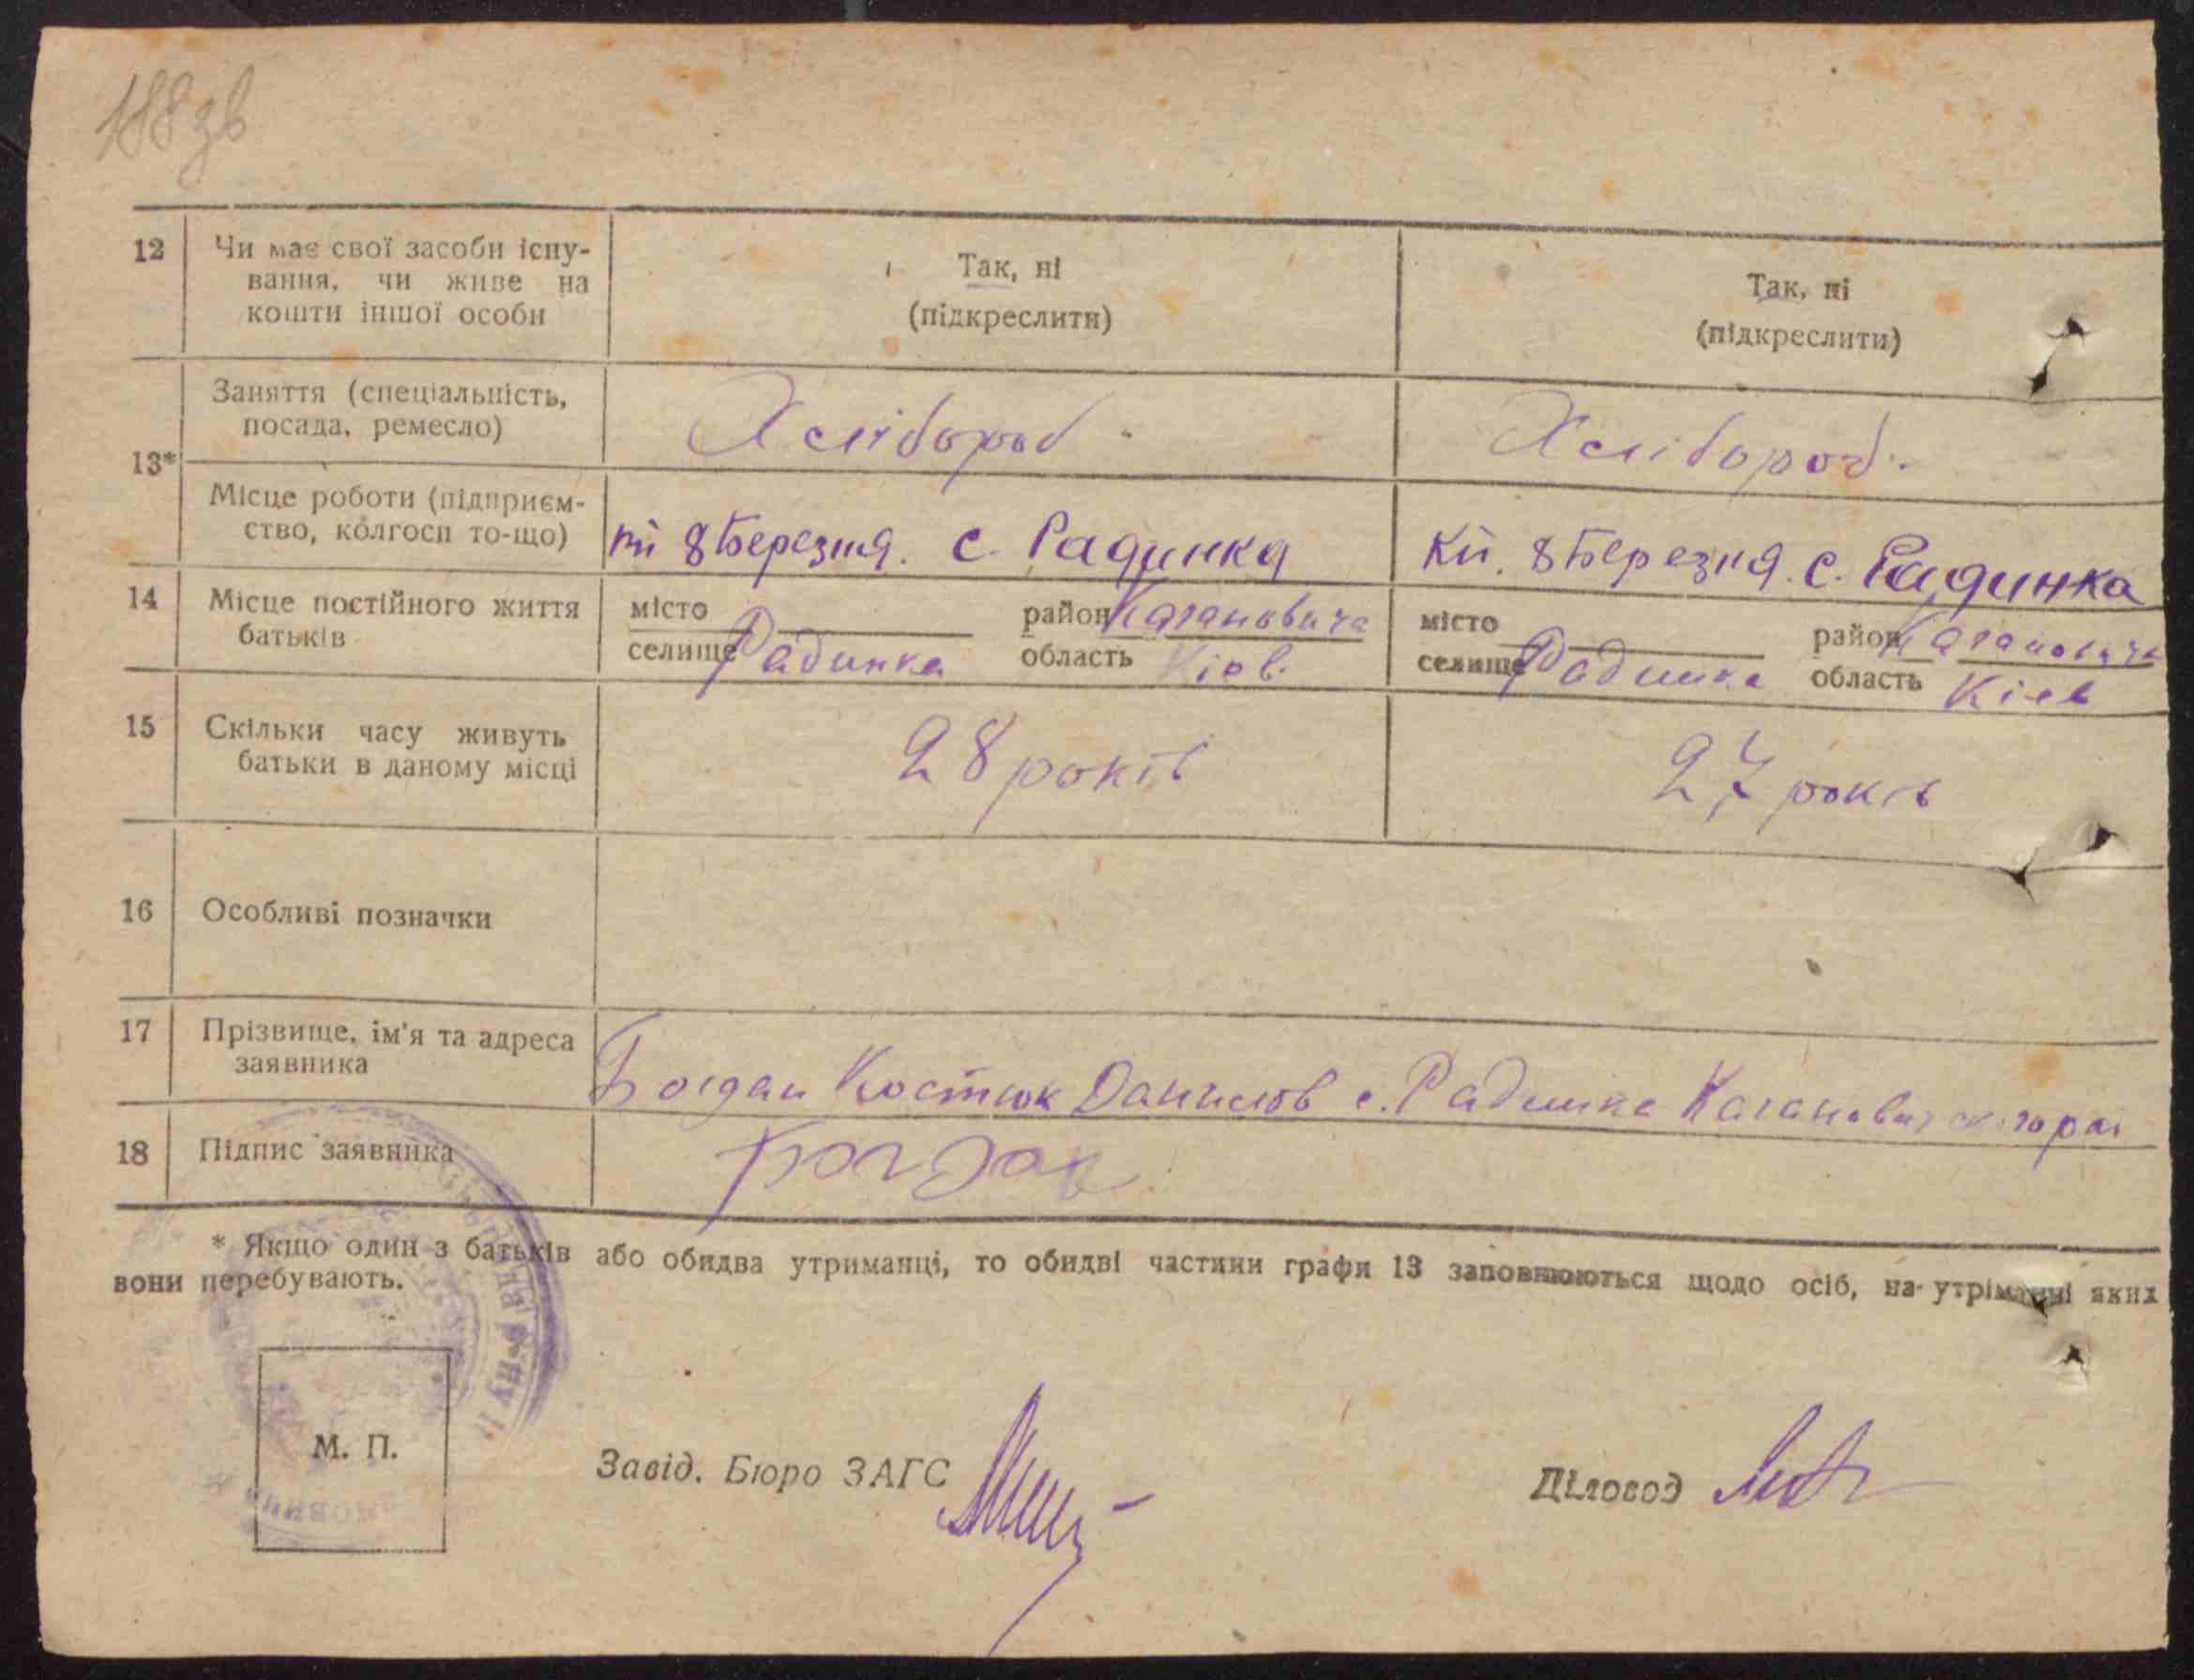 188 зв
12 Чи має свої засоби існу-
вання, чи живе на
кошти іншої особи
Так, ні
(підкреслити)
Так, ні
(підкреслити)
13*
Заняття (спеціальність,
посада, ремесло)
Хлібороб
Хлібороб.
Місце роботи (підприєм-
ство, колгосп то-що)
8 Березня. с. Радинка
8 Березня. с. Радинка
14 Місце постійного життя
батьків
місто район Кагановича
селище Радинка область Кіев.
місто район Кагановича
селище Радинка область Кіев
15 Скільки часу живуть
батьки в даному місці
28 років
27 років
16 Особливі позначки
17 Прізвище, ім'я та адреса
заявника
Богдан Костюк Данилов с. Радинка
18 Підпис заявника
Богдан
* Якщо один з батьків або обидва утриманці, то обидві частини графи 13 заповнюються щодо осіб, на утріманні яких
вони перебувають.
М. П.
Завід. Бюро ЗАГС
Діловод